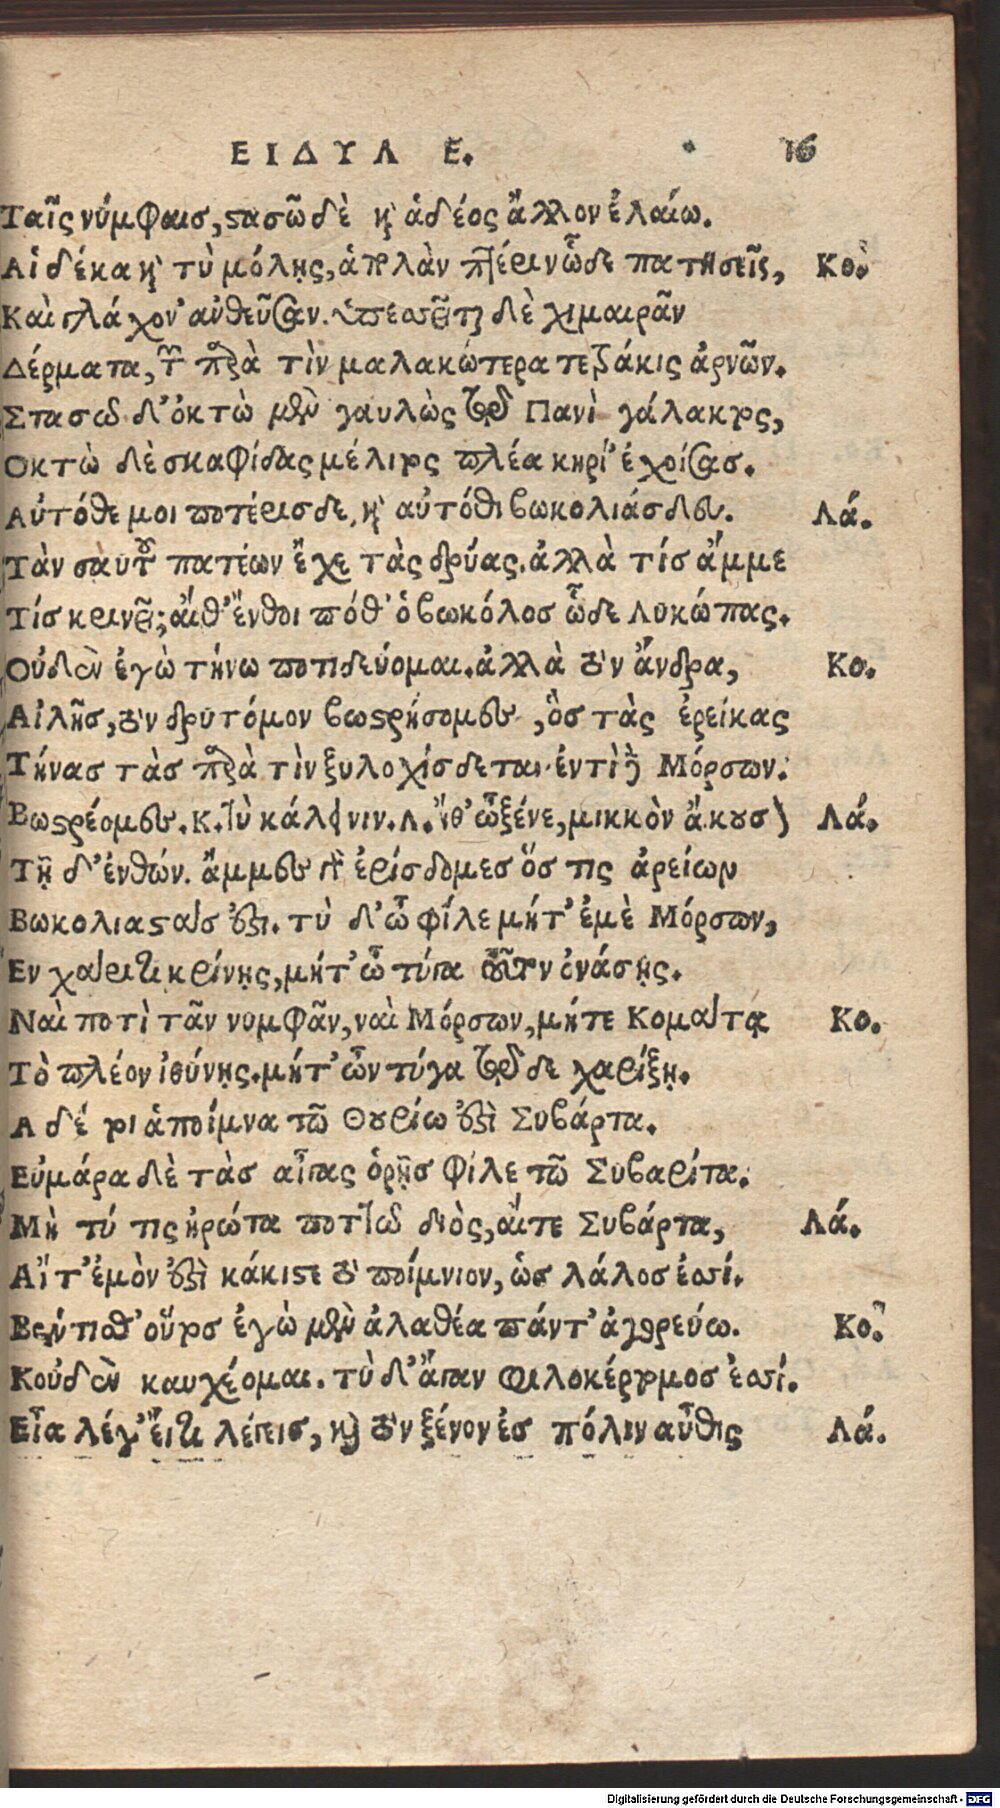 ΕΙΔΥΛ Ε. 16
Ταῖς νύμφαισ, στασῶ δὲ κὴ ἁδέος ἄλλον ἐλαίω.
Αἰ δέ κα κὴ τὺ μόλῃς, ἁπαλὰν πτέριν ὧδε πατησεῖς, Κο.
Καὶ γλάχον' ἀνθεῦσαν. ὑπεσσεῖται δὲ χιμαιρᾶν
Δέρματα, τῶν παρὰ τὶν μαλακώτερα τετράκις ἀρνῶν.
Στασῶ δ' ὀκτὼ μὲν γαυλὼς τῷ Πανὶ γάλακτος,
Οκτὼ δὲ σκαφίδας μέλιτος πλέα κηρί' ἐχοίσας.
Αὐτόθε μοι ποτέρισδε, κὴ αὐτόθι βωκολιάσδευ. Λά.
Τὰν σαυτοῦ πατέων ἔχε τὰς δρύας. ἀλλὰ τίς ἄμμε
Τίς κρινεῖ; αἴθ' ἔνθοι πόθ' ὁ βωκόλος ὧδε Λυκώπας.
Οὐδὲν ἐγὼ τήνω ποτιδεύομαι. ἀλλὰ τὸν ἄνδρα, Κο.
Αἰ λῇς, τὸν δρυτόμον βωστρήσομεν, ὃς τὰς ἐρείκας
Τήνας τὰς παρὰ τὶν ξυλοχίσδεται· ἐντὶ δὲ Μόρσων.
Βωστρέομεν. Κ. Τὺ κάλει νιν. Λ. ἴθ' ὦ ξένε, μικκὸν ἄκουσαι Λά.
Τῇ δ' ἐνθών. ἄμμες γὰρ ἐρίσδομες ὅς τις ἀρείων
Βωκολιαστάς ἐστι. τὺ δ' ὦ φίλε μήτ' ἐμὲ Μόρσων,
Εν χάριτι κρίνῃς, μήτ' ὦ τύγα τοῦτον ὀνάσῃς.
Ναὶ ποτὶ τᾶν νυμφᾶν, ναὶ Μόρσων, μήτε Κομάτα Κο.
Τὸ πλέον ἰθύνῃς. μήτ' ὦν τύγα τῷδε χαρίξῃ.
Α δέ τοι ἁ ποίμνα τῶ Θουρίω ἐστὶ Συβάρτα.
Εὐμάρα δὲ τὰς αἶγας ὁρῇς φίλε τῶ Συβαρίτα.
Μὴ τύ τις ἠρώτα ποττῶ διὸς, αἴτε Συβάρτα, Λά.
Αἴ τ' ἐμὸν ἐστὶ κάκιστε τὸ ποίμνιον, ὡς λάλος ἐσσί.
Βέντισθ' οὗτος ἐγὼ μὲν ἀλαθέα πάντ' ἀγορεύω. Κο.
Κοὐδὲν καυχέομαι. τὺ δ' ἄγαν φιλοκέρτομος ἐσσί.
Εἶα λέγ' εἴ τι λέγεις, καὶ τὸν ξένον ἐς πόλιν αὖθις Λά.
Digitalisierung gefördert durch die Deutsche Forschungsgemeinschaft - DFG